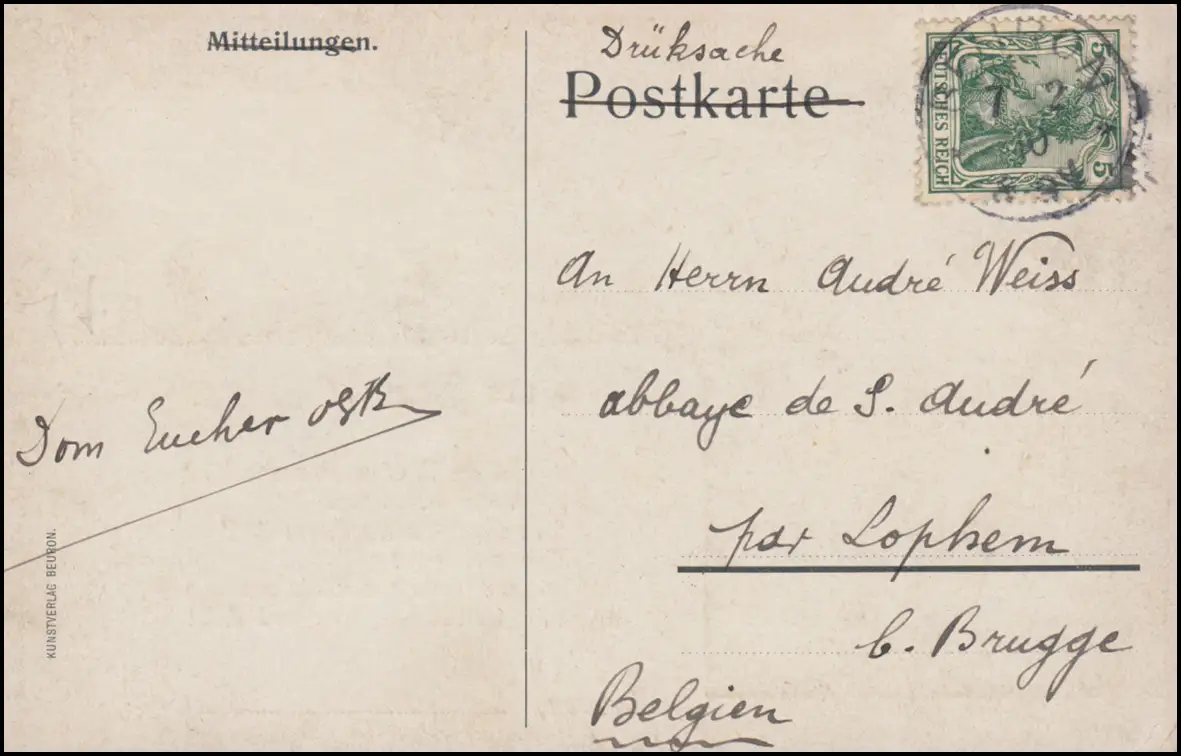 Mitteilungen.
Drüksache
Postkarte
DEUTSCHES REICH
5
5
7 2
10
8-9N
An Herrn André Weiss
abbaye de S. André
par Lophem
b. Brugge
Belgien
Dom Eucher
KUNSTVERLAG BEURON.